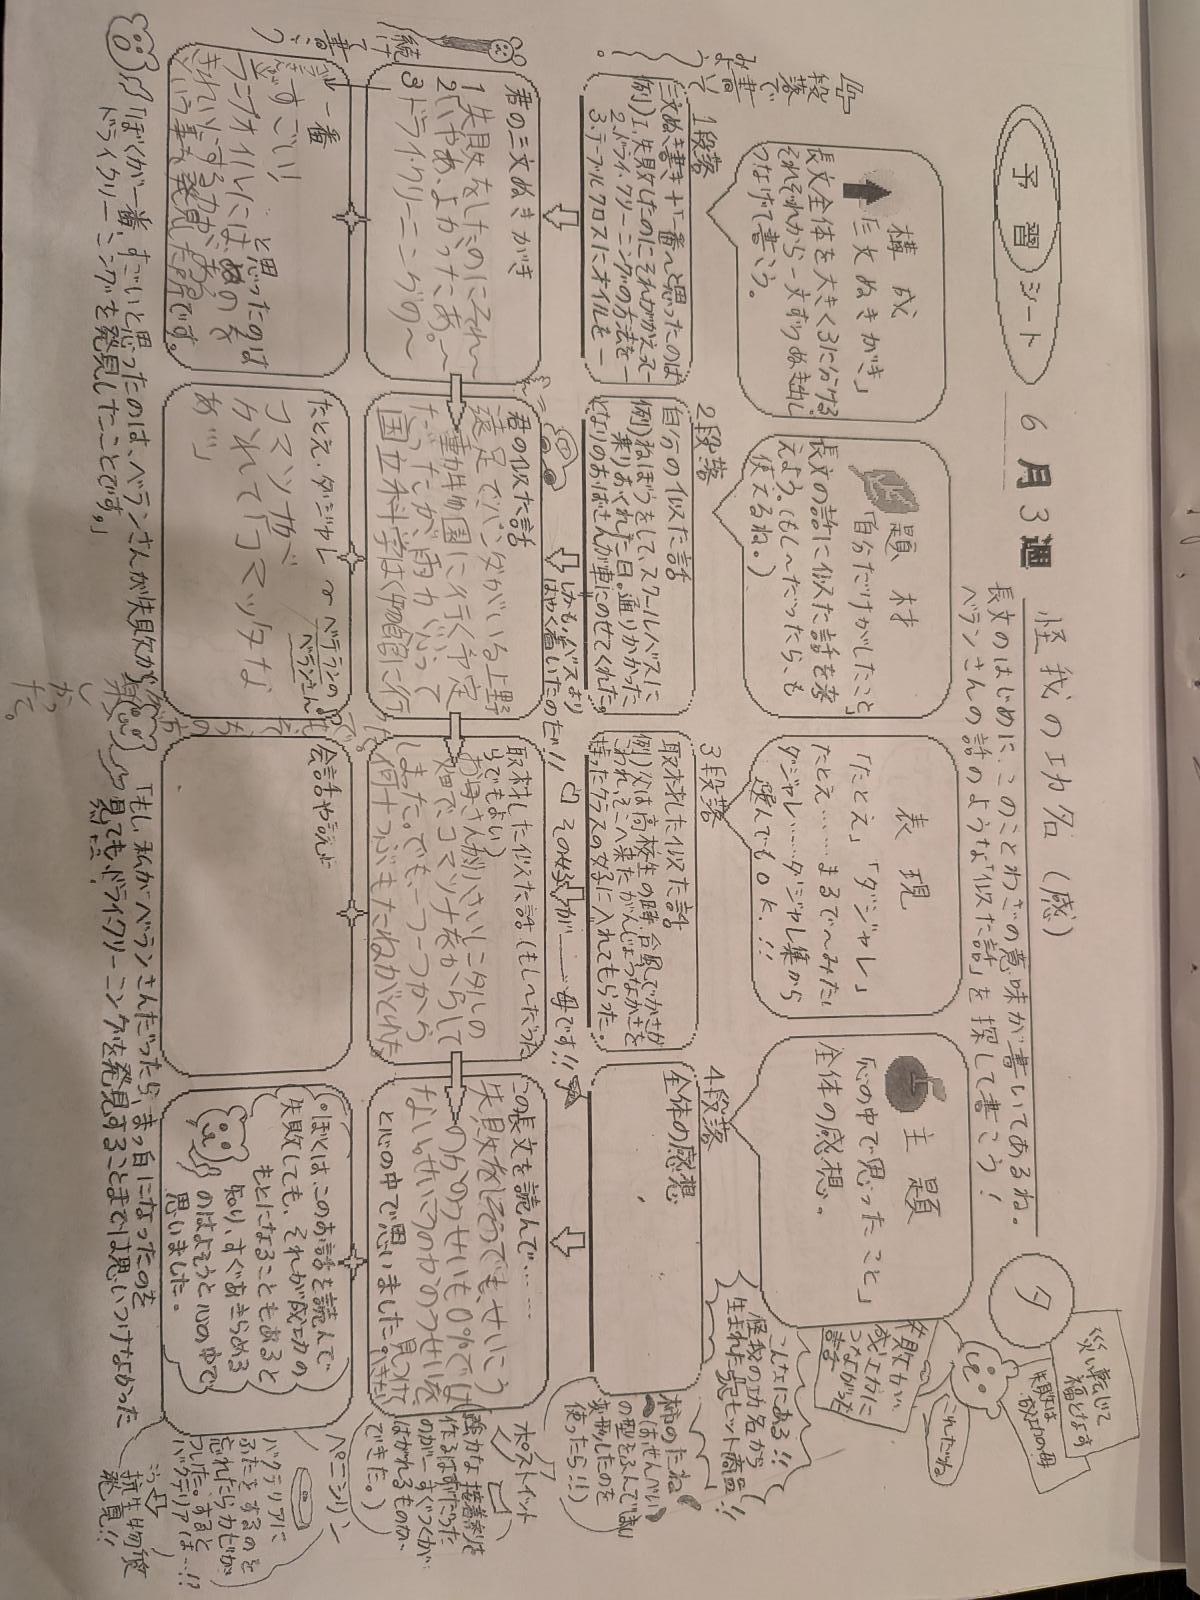 予習シート
6月3週
怪我の功名(感)
長文のはじめに、このことわざの意味が書いてあるね。
ベランさんの話のような「似た話」を探して書こう!
タ
災い転じて
福となす
失敗は
成功の母
これだね
失敗が、
成功に
つながった
話
構成
「三文ぬきがき」
長文全体を大きく3に分ける。
それぞれから一文ずつぬき出し
つなげて書こう。
題材
「自分だけがしたこと」
長文の話に似た話を考
えよう。(もし〜だったら、も
使えるね。)
表現
「たとえ」「ダジャレ」
たとえ……まるで〜みたい
ダジャレ……ダジャレ集から
選んでもOK.!!!
主題
「心の中で思ったこと」
全体の感想。
各段落
で
書いて
みよう
。
1段落
三文ぬき書き+「一番〜と思ったのは
例)1.失敗したのにそれがかえって―
2.ドライ・クリーニングの方法を―
3.テーブルクロスにオイルを―
2段落
自分の似た話
例)ねぼうをして、スクールバスに
乗りおくれた日。通りかかった
となりのおばさんが車にのせてくれた。
しかも、バスより
はやく着いたのだ!!
3段落
取材した似た話
例)父は高校生の時、台風でかさが
こわれて、そこへ来たがんじょうなかさを
持ったクラスの女子に入れてもらった。
その女子が――母です!!
4段落
全体の感想
こんなにある!!
怪我の功名から
生まれた大ヒット商品!!
柿のたね
(はせんべい
の型をふんでしまい
変形したのを
使ったら!!)
ポストイット
強力な接着剤を
作るはずだった
のが…すぐつくが、
はがれるものが、
できた。)
ペニシリン
バクテリアに
ふたをするのを
忘れたらカビが
ついた。すると
バクテリアは…!?
抗生物質
発見!!
君の三文ぬきがき
1失敗をしたのにそれ〜
2いやあ、よかったなあ。〜
3ドライクリーニングの〜
君の似た話
遠足でパンダがいる上野
動物園に行く予定
だったが、雨がふって
国立科学はく物館に行
取材した似た話(もし〜だった
らでもよい)
お母さんが小さいころ
畑でコマツナをからして
しまった。でも、一つ一つから
何十つぶもたねがとれた
この長文を読んで……
失敗をしそうでも、せいこう
のかのうせいも0%では
ない。せいこうのかのうせいを
見つけ
と心の中で思いました。
続け
て書こう
一番
すごい!
と思ったのは
きれいにする力がある
という事を発見した所です。
たとえ・ダジャレ or ベテランの
ベランさん
コマツナが
かれて「コマッタな
あ…」
会話や読点
・ぼくは、このお話を読んで
失敗しても、それが成功の
もとになることもあると
知り、すぐあきらめる
のはよそうと心の中で
思いました。
「ぼくが一番、すごいと思ったのは、ベランさんが失敗から
ドライクリーニングを発見したことです。」
「もし、私がベランさんだったら、まっ白になったのを
見ても、ドライクリーニングを発見することまでは思いつけなかった